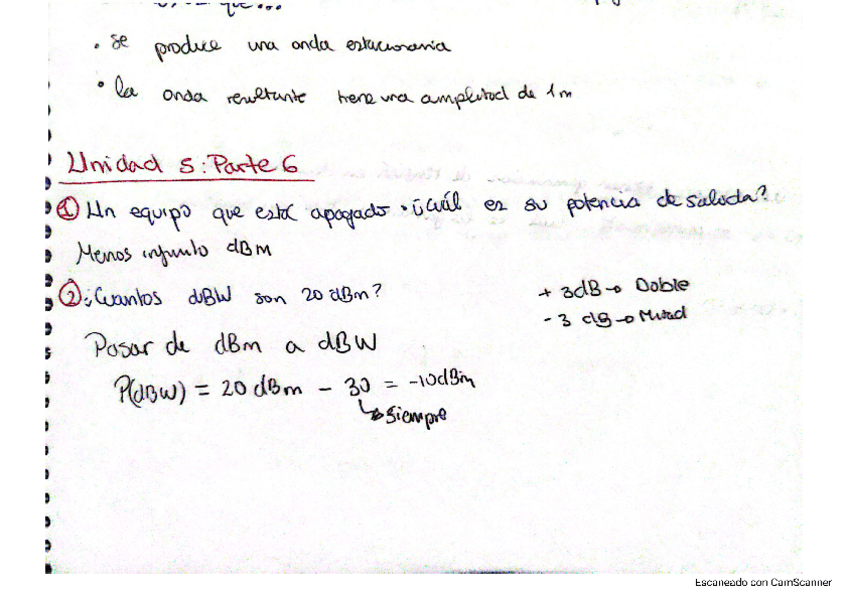 que...
• se produce una onda estacionaria
• la onda resultante tiene una amplitud de 1m
Unidad 5: Parte 6
① Un equipo que está apagado. ¿Cuál es su potencia de salida?
Menos infinito dBm
② ¿Cuantos dBW son 20 dBm?
+ 3dB → Doble
- 3 dB → Mitad
Pasar de dBm a dBW
P(dBW) = 20 dBm - 30 = -10dBm
↳ Siempre
Escaneado con CamScanner